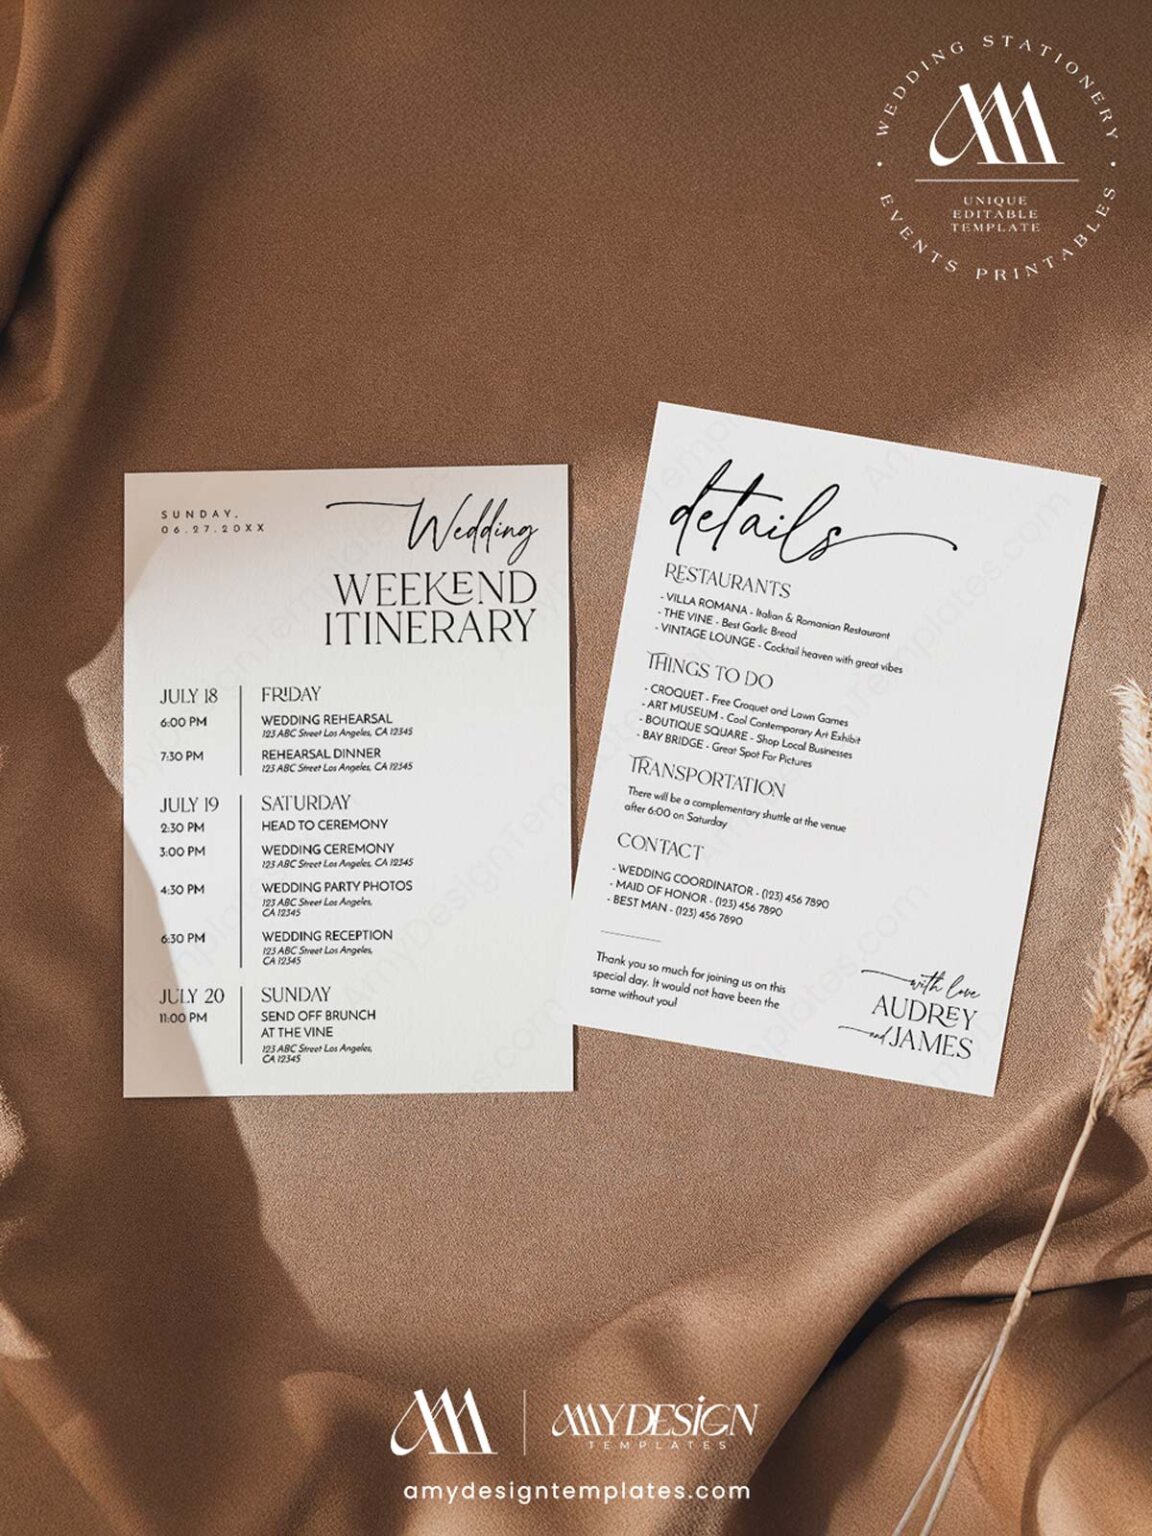 WEDDING STATIONERY
UNIQUE
EDITABLE
TEMPLATE
EVENTS PRINTABLES
SUNDAY,
06.27.20XX
Wedding
WEEKEND
ITINERARY
JULY 18 FRIDAY
6:00 PM WEDDING REHEARSAL
123 ABC Street Los Angeles, CA 12345
7:30 PM REHEARSAL DINNER
123 ABC Street Los Angeles, CA 12345
JULY 19 SATURDAY
2:30 PM HEAD TO CEREMONY
3:00 PM WEDDING CEREMONY
123 ABC Street Los Angeles, CA 12345
4:30 PM WEDDING PARTY PHOTOS
123 ABC Street Los Angeles,
CA 12345
6:30 PM WEDDING RECEPTION
123 ABC Street Los Angeles,
CA 12345
JULY 20 SUNDAY
11:00 PM SEND OFF BRUNCH
AT THE VINE
123 ABC Street Los Angeles,
CA 12345
details
RESTAURANTS
- VILLA ROMANA - Italian & Romanian Restaurant
- THE VINE - Best Garlic Bread
- VINTAGE LOUNGE - Cocktail heaven with great vibes
THINGS TO DO
- CROQUET - Free Croquet and Lawn Games
- ART MUSEUM - Cool Contemporary Art Exhibit
- BOUTIQUE SQUARE - Shop Local Businesses
- BAY BRIDGE - Great Spot For Pictures
TRANSPORTATION
There will be a complementary shuttle at the venue
after 6:00 on Saturday
CONTACT
- WEDDING COORDINATOR - (123) 456 7890
- MAID OF HONOR - (123) 456 7890
- BEST MAN - (123) 456 7890
Thank you so much for joining us on this
special day. It would not have been the
same without you!
with love
AUDREY
and JAMES
AMYDESIGN
TEMPLATES
amydesigntemplates.com